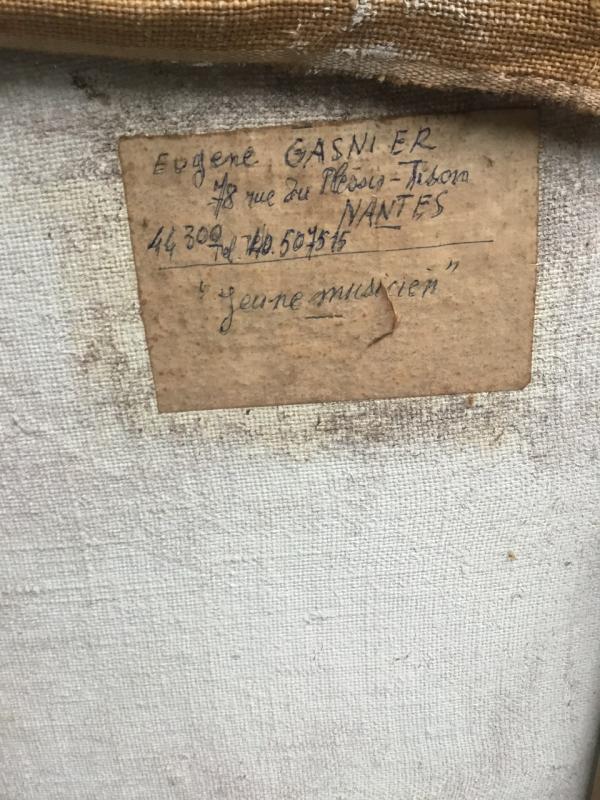 Eugene GASNIER
78 rue du Plessis-Tison
NANTES
44 300 Tel. 40.507515
"Jeune musicien"